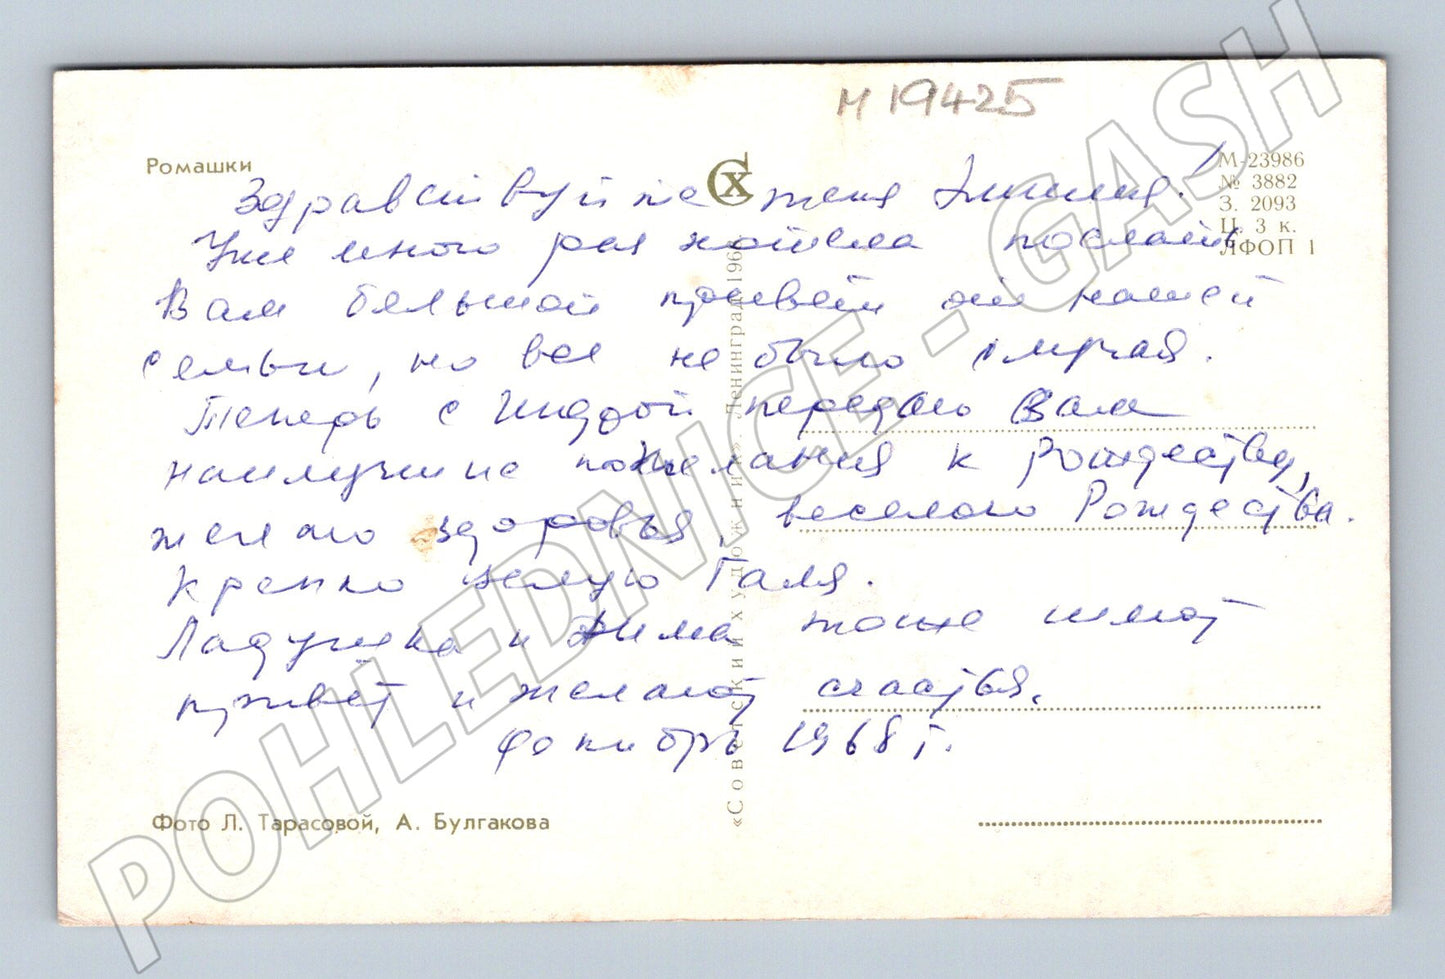 М 19425
Ромашки
СХ
М-23986
№ 3882
З. 2093
Ц. 3 к.
ЛФОП 1
Здравствуйте тетя Эмилия!
Уже много раз хотела послать
Вам большой привет от нашей
семьи, но все не было случая.
Теперь с Индрой передаю Вам
наилучшие пожелания к Рождеству,
желаю здоровья, веселого Рождества.
Крепко целую Галя.
Ладушка и Дима тоже шлют
привет и желают счастья.
декабрь 1968 г.
«Советский художник». Ленинград. 196
Фото Л. Тарасовой, А. Булгакова
POHLEDNICE - GASH